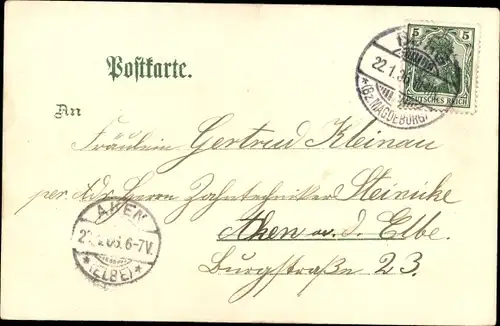 Postkarte.
5 5
DEUTSCHES REICH
22.1.
*(BZ. MAGDEBURG)*
An
Fräulein Gertrud Kleinau
per Adr. Herrn Zahntechniker Steinicke
Aken a. d. Elbe.
Burgstraße 23.
AKEN
.06. 6-7V.
*(ELBE)*